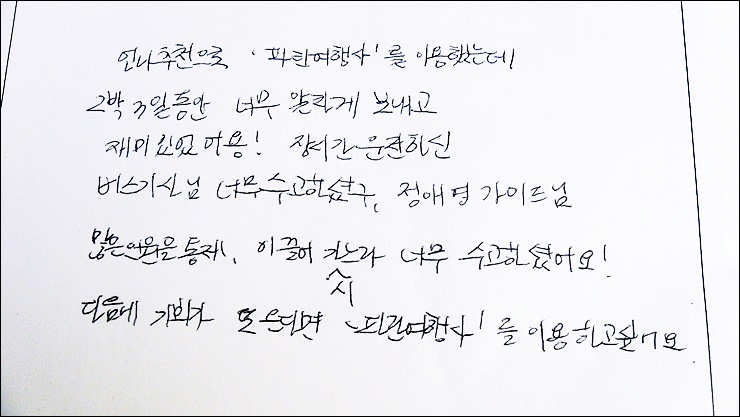 언니추천으로 '파란여행사'를 이용했는데
2박 3일동안 너무 알차게 보내고
재미있었어용! 장시간 운전하신
버스기사님 너무수고하셨구, 정애영 가이드님
많은인원을 통제, 이끌어 가시느라 너무 수고하셨어요!
다음에 기회가 또 온다면 '파란여행사'를 이용하고싶어요